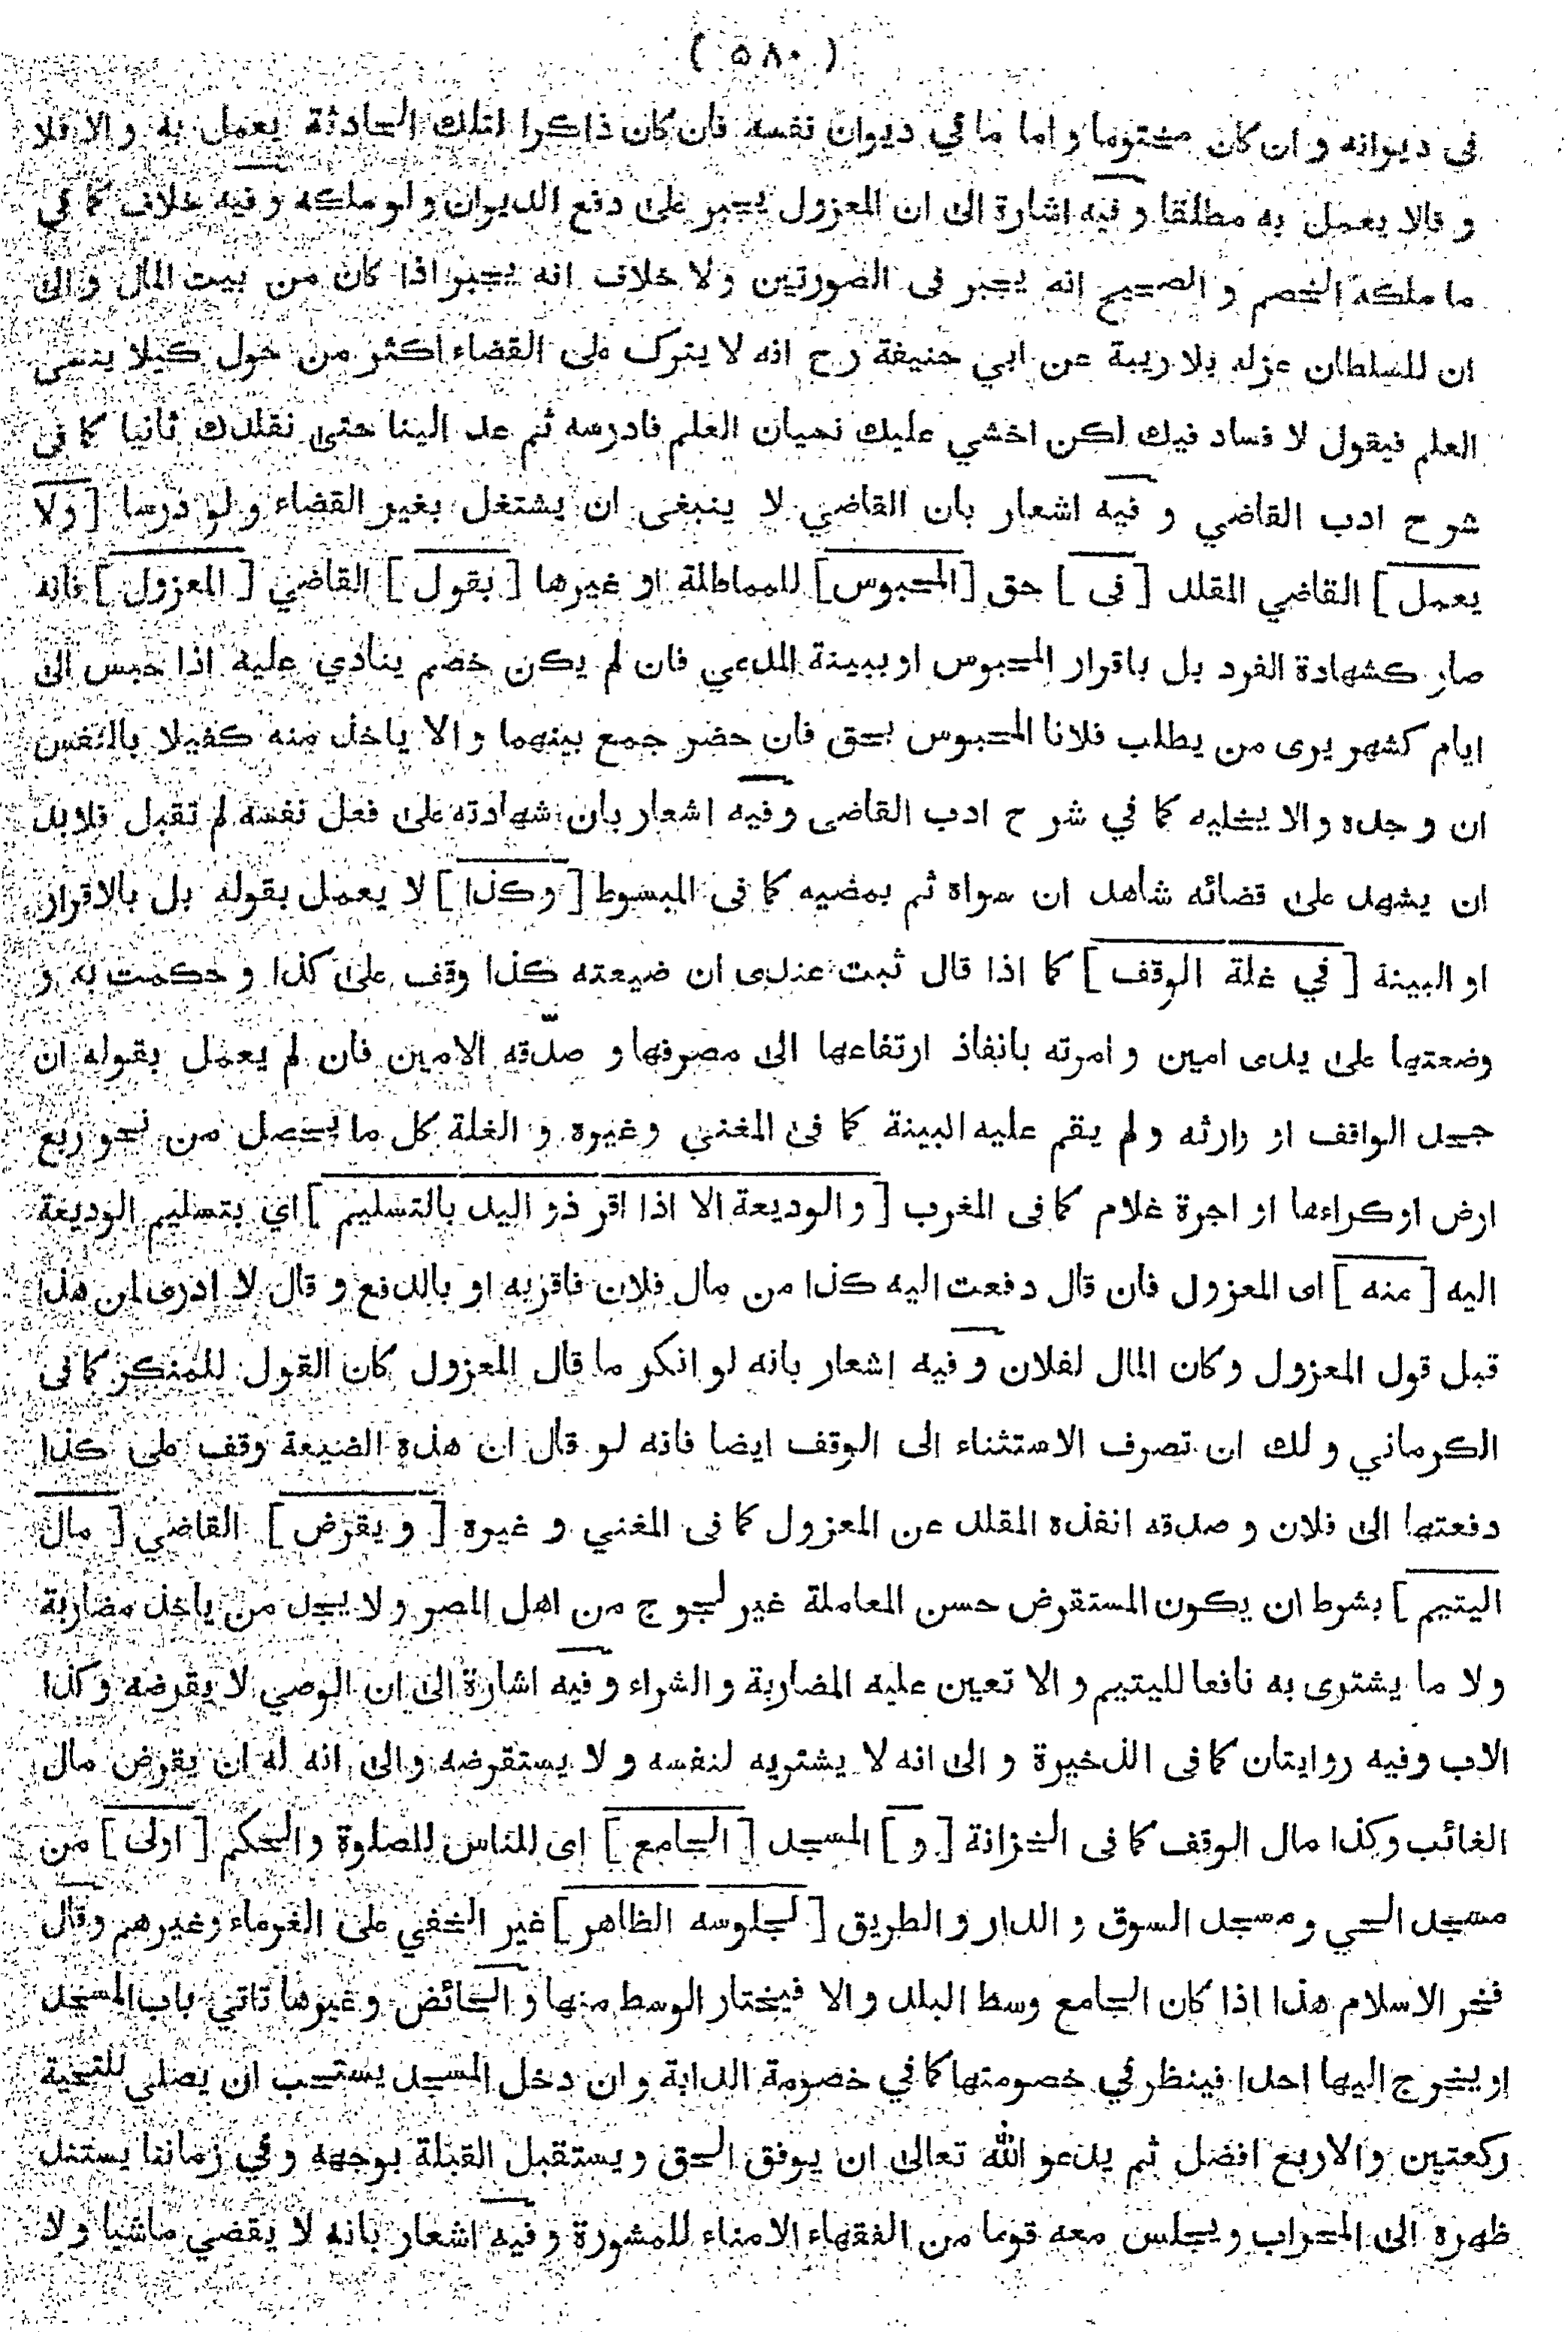 ( ٥٨٠ )
فى ديوانه و ان كان مختوما و اما ما في ديوان نفسه فان كان ذاكرا لتلك الحادثة يعمل به و الا فلا
و قالا يعمل به مطلقا و فيه اشارة الى ان المعزول يجبر على دفع الديوان و لو ملكه و فيه خلاف كما في
ما ملكه الخصم و الصحيح انه يجبر فى الصورتين ولا خلاف انه يجبر اذا كان من بيت المال و الى
ان للسلطان عزله بلا ريبة عن ابي حنيفة رح انه لا يترك على القضاء اكثر من حول كيلا ينسى
العلم فيقول لا فساد فيك لكن اخشي عليك نسيان العلم فادرسه ثم عد الينا حتى نقلدك ثانيا كما فى
شرح ادب القاضي و فيه اشعار بان القاضي لا ينبغى ان يشتغل بغير القضاء و لو درسا [ ولا
يعمل ] القاضي المقلد [ فى ] حق [ المحبوس ] للمماطلة او غيرها [ بقول ] القاضي [ المعزول ] فانه
صار كشهادة الفرد بل باقرار المحبوس او ببينة المدعي فان لم يكن خصم ينادي عليه اذا حبس الى
ايام كشهر يرى من يطلب فلانا المحبوس بحق فان حضر جمع بينهما و الا ياخذ منه كفيلا بالنفس
ان وجده و الا يخليه كما في شرح ادب القاضى و فيه اشعار بان شهادته على فعل نفسه لم تقبل فلابد
ان يشهد على قضائه شاهد ان سواه ثم يمضيه كما فى المبسوط [ و كذا ] لا يعمل بقوله بل بالاقرار
او البينة [ في غلة الوقف ] كما اذا قال ثبت عندى ان ضيعته كذا وقف على كذا و حكمت به و
وضعتها على يدى امين و امرته بانفاذ ارتفاعها الى مصرفها و صدّقه الامين فان لم يعمل بقوله ان
جحد الواقف او وارثه و لم يقم عليه البينة كما فى المغني وغيره و الغلة كل ما يحصل من نحو ريع
ارض او كراءها او اجرة غلام كما فى المغرب [ و الوديعة الا اذا اقر ذو اليد بالتسليم ] اي بتسليم الوديعة
اليه [ منه ] اى المعزول فان قال دفعت اليه كذا من مال فلان فاقربه او بالدفع و قال لا ادرى لمن هذا
قبل قول المعزول و كان المال لفلان و فيه اشعار بانه لو انكر ما قال المعزول كان القول للمنكر كما فى
الكرماني و لك ان تصرف الاستثناء الى الوقف ايضا فانه لو قال ان هذه الضيعة وقف على كذا
دفعتها الى فلان و صدقه انفذه المقلد عن المعزول كما فى المغني و غيره [ و يقرض ] القاضي [ مال
اليتيم ] بشرط ان يكون المستقرض حسن المعاملة غير لجوج من اهل المصر و لا يجد من ياخذ مضاربة
و لا ما يشترى به نافعا لليتيم و الا تعين عليه المضاربة و الشراء و فيه اشارة الى ان الوصي لا يقرضه وكذا
الاب وفيه روايتان كما فى الذخيرة و الى انه لا يشتريه لنفسه و لا يستقرضه والى انه له ان يقرض مال
الغائب وكذا مال الوقف كما فى الخزانة [ و ] المسجد [ الجامع ] اى للناس للصلوة والحكم [ اولى ] من
مسجد الحي و مسجد السوق و الدار و الطريق [ لجلوسه الظاهر ] غير الخفي على الغرماء وغيرهم وقال
فخر الاسلام هذا اذا كان الجامع وسط البلد و الا فيختار الوسط منها و الحائض و غيرها تاتي باب المسجد
او يخرج اليها احدا فينظر في خصومتها كما في خصومة الدابة و ان دخل المسجد يستحب ان يصلي للتحية
ركعتين و الاربع افضل ثم يدعو الله تعالى ان يوفق الحق و يستقبل القبلة بوجهه و في زماننا يستند
ظهره الى المحراب و يجلس معه قوما من الفقهاء الامناء للمشورة و فيه اشعار بانه لا يقضي ماشيا و لا